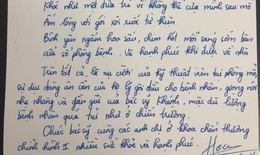 Khỏe như một đứa trẻ vì không thể của mình sau mổ
Ấm lòng với gói xôi nước từ thiện
Bình yên ngắm hoa sấu, chim hót mỗi sáng cạnh bên
cửa sổ phòng bệnh. Và hạnh phúc khi được về nhà
Trên tất cả, là nụ cười của kỹ thuật viên tại phòng mổ,
sự dịu dàng ân cần của bộ lý gối đầu cho bệnh nhân, giọng nói
nhẹ nhàng và dẫn giải của bác sỹ Khánh, mặc dù lượng
bệnh nhân quá tải như ở chiến trường.
Chúc bác sỹ cùng các anh chị ở khoa chấn thương
chỉnh hình II nhiều sức khỏe và hạnh phúc.
Hoa